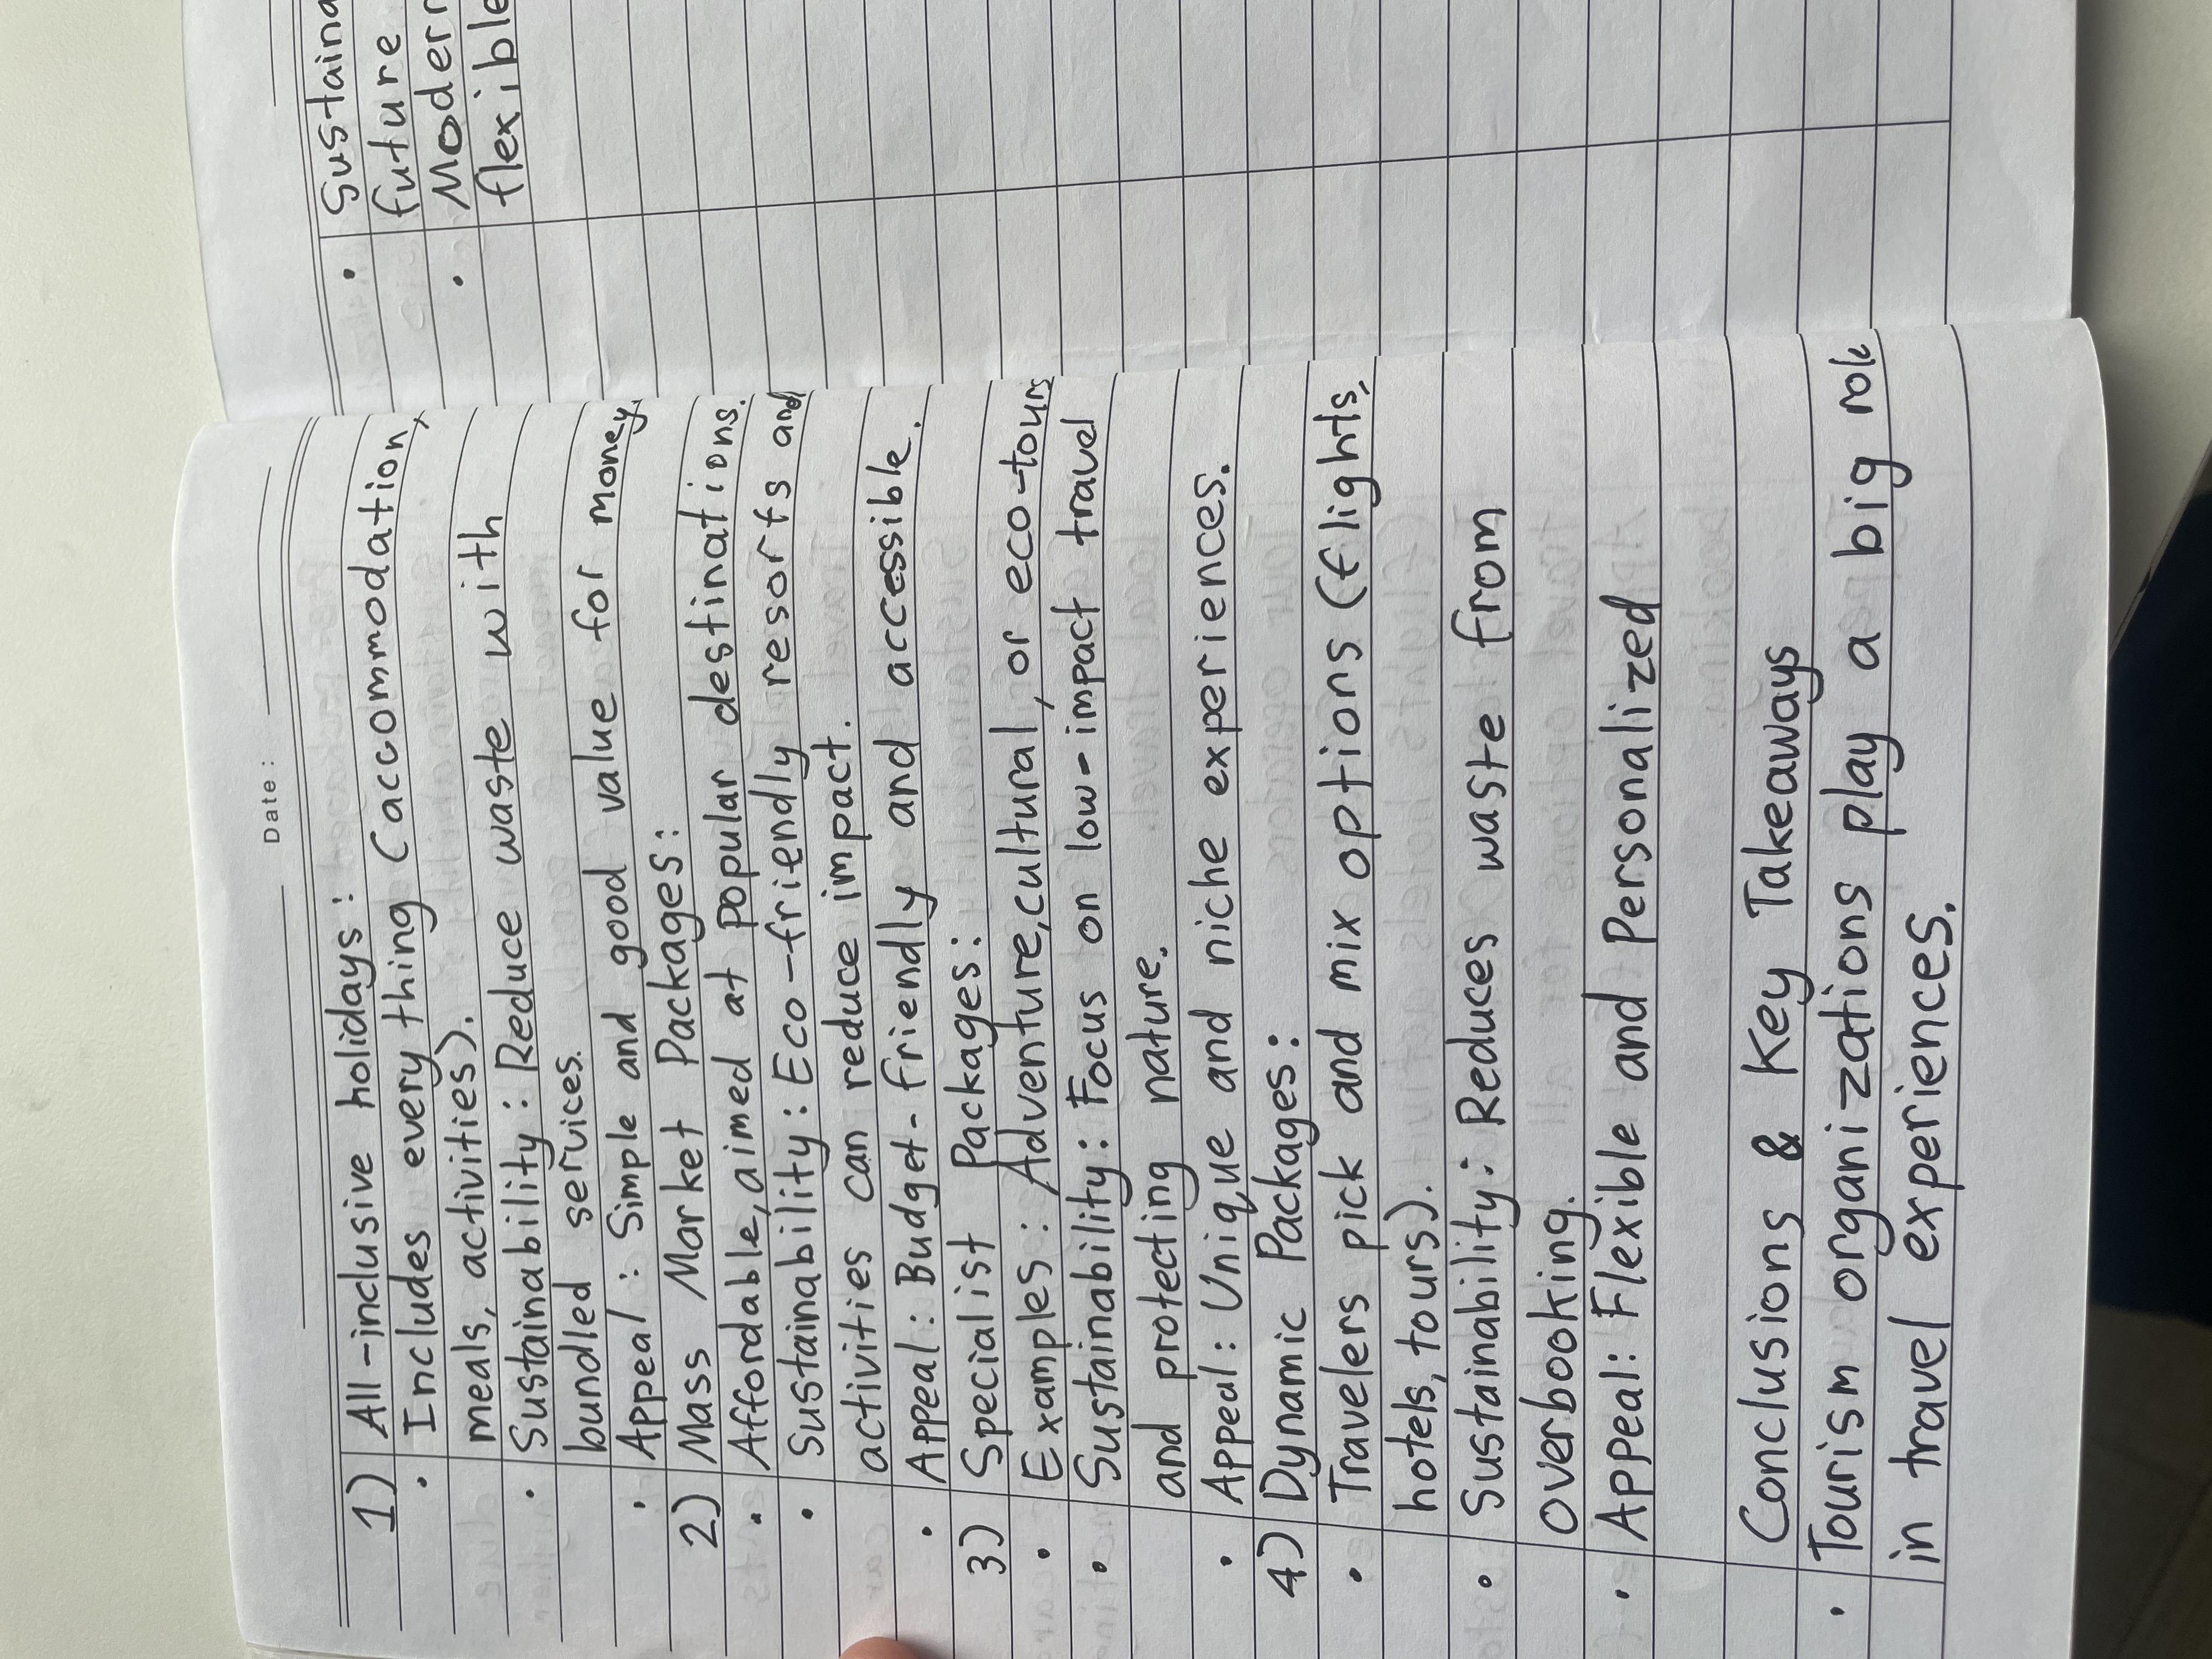 Date:
1) All-inclusive holidays:
• Includes every thing (accommodation,
meals, activities).
• Sustainability: Reduce waste with
bundled services.
• Appeal: Simple and good value for money.
2) Mass Market Packages:
• Affordable, aimed at popular destinations.
• Sustainability: Eco-friendly resorts and
activities can reduce impact.
• Appeal: Budget-friendly and accessible.
3) Specialist Packages:
• Examples: Adventure, cultural, or eco-tours
• Sustainability: Focus on low-impact travel
and protecting nature.
• Appeal: Unique and niche experiences.
4) Dynamic Packages:
• Travelers pick and mix options (flights,
hotels, tours).
• Sustainability: Reduces waste from
overbooking.
• Appeal: Flexible and Personalized
Conclusions & Key Takeaways
• Tourism organizations play a big role
in travel experiences.
• Sustaina
future
• Modern
flexible